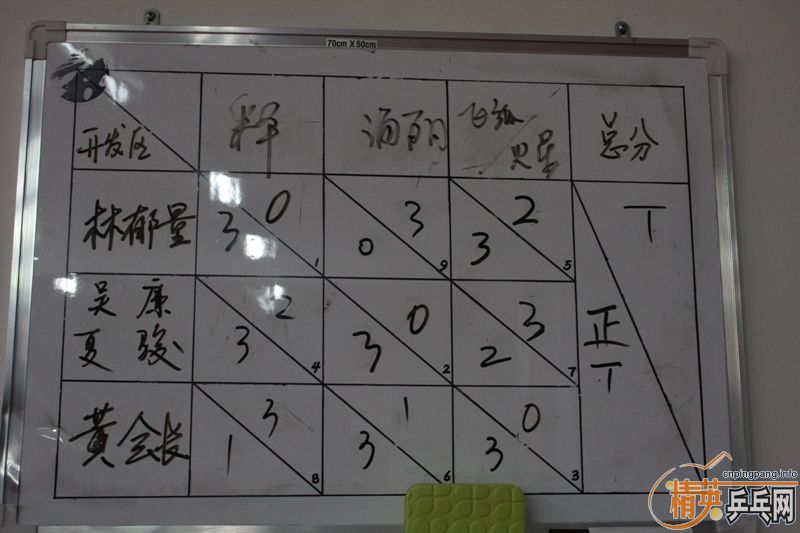 70cm X 50cm
开发区
总分
林郁量
3 0 1
0 3 9
3 2 5
丅
吴 康
夏 骏
3 2 4
3 0 2
2 3 7
正
丅
黄会长
1 3 8
3 1 6
3 0 3
cnpingpang.info
精英乒乓网